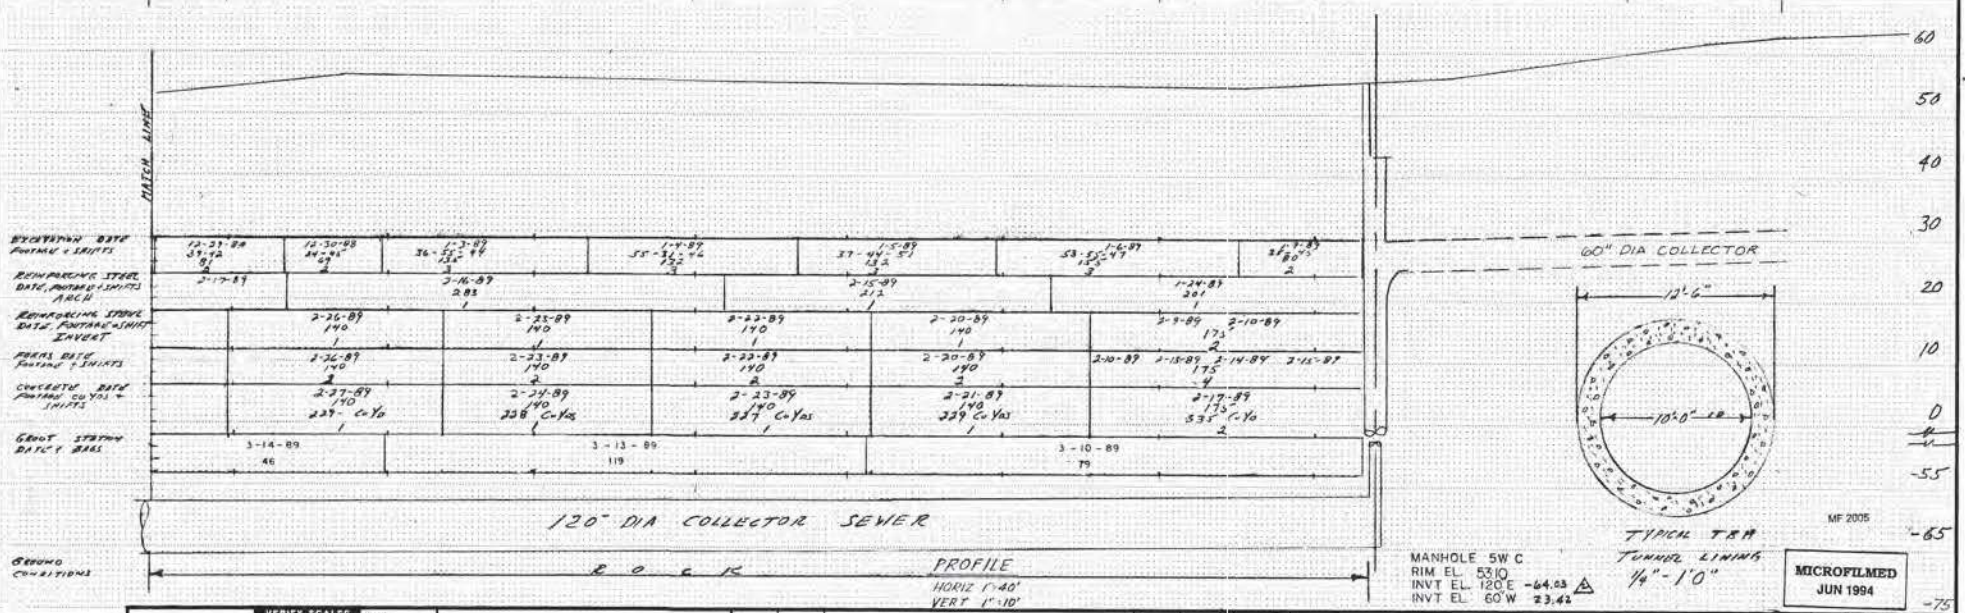 MATCH LINE
EXCAVATION DATE
FOOTAGE & SHIFTS
12-30-88
2
2
1-3-89
36-55-44
135
3
1-4-89
55-31-46
132
3
1-5-89
37-44-51
132
3
1-6-89
53-55-47
155
3
80
2
REINFORCING STEEL
DATE, FOOTAGE & SHIFTS
ARCH
2-17-89
2-16-89
283
1
2-15-89
212
1
1-24-89
201
1
REINFORCING STEEL
DATE, FOOTAGE & SHIFT
INVERT
2-26-89
140
1
2-23-89
140
1
2-22-89
140
1
2-20-89
140
1
2-9-89 2-10-89
175
2
FORMS DATE
FOOTAGE & SHIFTS
2-26-89
140
2
2-23-89
140
2
2-22-89
140
2
2-20-89
140
2
2-10-89 2-13-89 2-14-89 2-15-89
175
4
CONCRETE DATE
FOOTAGE CU YDS &
SHIFTS
2-27-89
140
229 Cu Yd
1
2-24-89
140
228 Cu Yds
1
2-23-89
140
227 Cu Yds
1
2-21-89
140
229 Cu Yds
1
2-17-89
175
335 Cu Yd
2
GROUT STATION
DATE & BAGS
3-14-89
46
3-13-89
119
3-10-89
79
120" DIA COLLECTOR SEWER
GROUND
CONDITIONS
ROCK
PROFILE
HORIZ 1"=40'
VERT 1"=10'
60" DIA COLLECTOR
12'-6"
10'-0" ID
TYPICAL TBM
TUNNEL LINING
1/4" - 1'0"
MANHOLE 5W C
RIM EL. 53.10
INVT EL. 120 E -64.03
INVT EL. 60 W 23.42
MF 2005
MICROFILMED
JUN 1994
60
50
40
30
20
10
0
-55
-65
-75